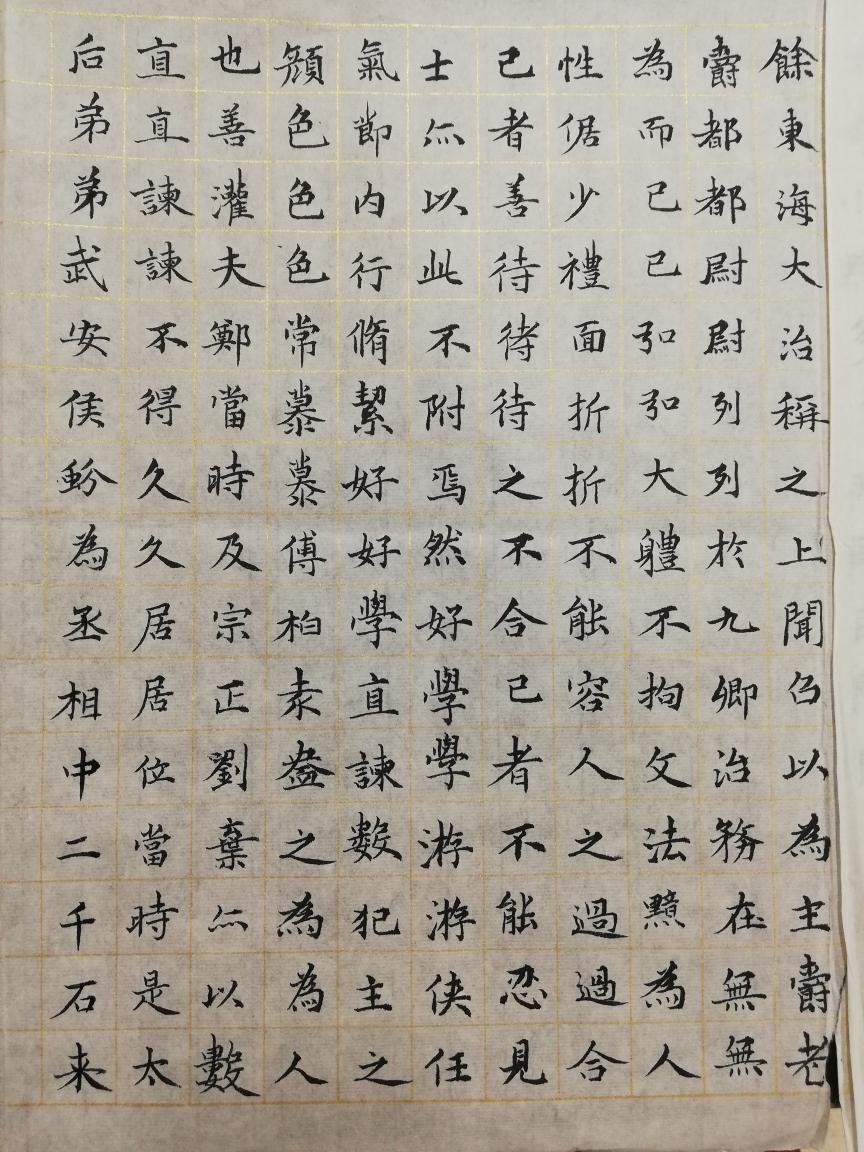 餘東海大治稱之上聞召以為主爵老
爵都都尉尉列列於九卿治務在無無
為而已已弘弘大軆不拘文法黯為人
性倨少禮面折折不能容人之過過合
己者善待待待之不合己者不能忍見
士亦以此不附焉然好學學游游俠任
氣節內行脩絜好好學直諫數犯主之
顏色色色常慕慕傅柏袁盎之為為人
也善灌夫鄭當時及宗正劉棄亦以數
直直諫諫不得久久居居位當時是太
后弟弟武安侯蚡為丞相中二千石来